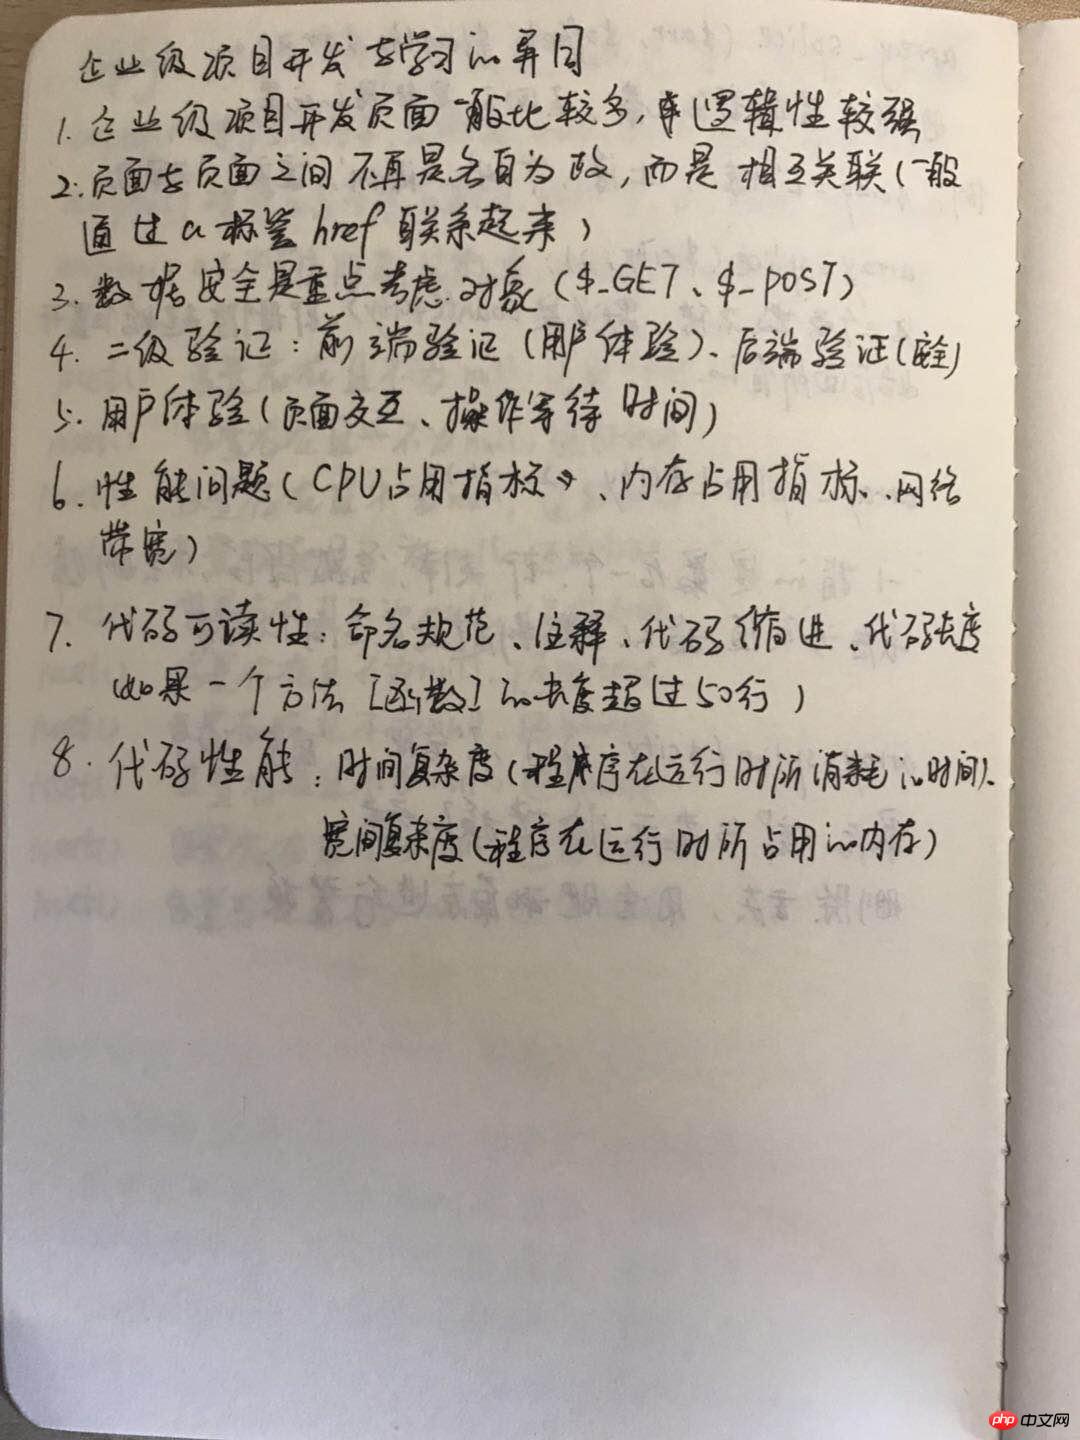 企业级项目开发与学习的异同
1. 企业级项目开发页面一般比较多,逻辑性较强
2. 页面与页面之间不再是各自为政,而是相互关联(一般
通过a标签href联系起来)
3. 数据安全是重点考虑对象($_GET、$_POST)
4. 二级验证:前端验证(用户体验)、后端验证(安全)
5. 用户体验(页面交互、操作等待时间)
6. 性能问题(CPU占用指标、内存占用指标、网络
带宽)
7. 代码可读性:命名规范、注释、代码缩进、代码长度
(如果一个方法[函数]的长度超过50行)
8. 代码性能:时间复杂度(程序在运行时所消耗的时间)、
空间复杂度(程序在运行时所占用的内存)
php 中文网